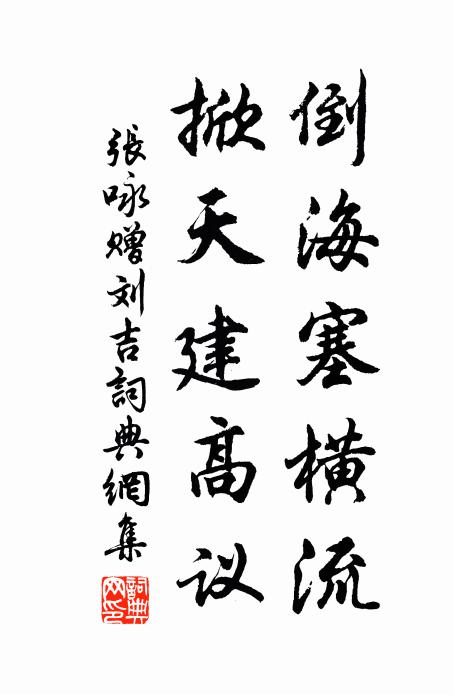 倒海塞横流
掀天建高议
張咏赠刘吉詞典網集
詞典網印